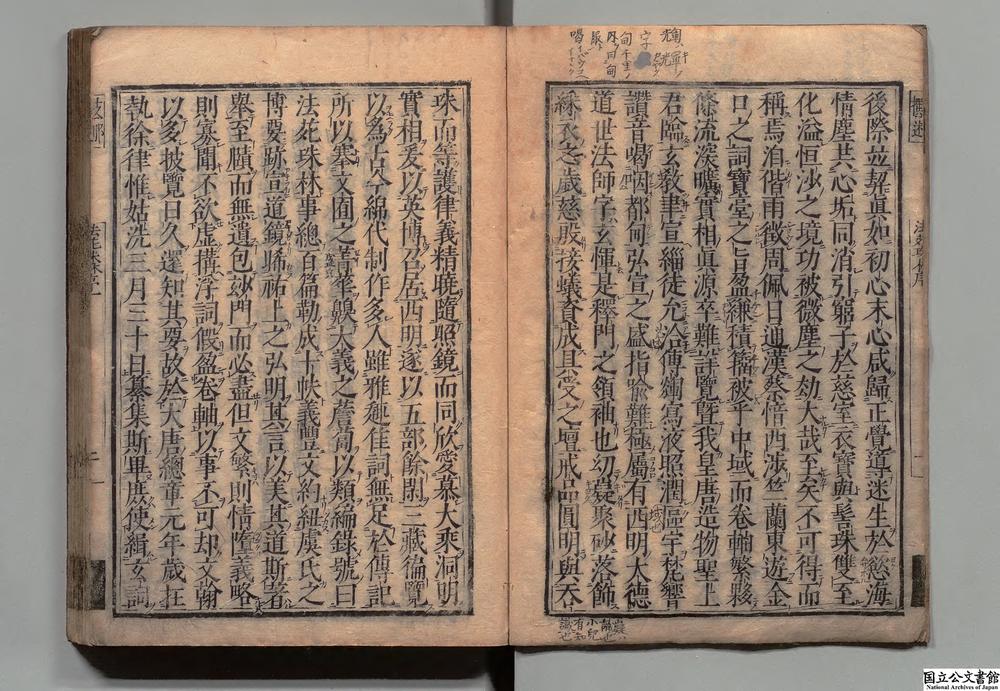 後際並契眞如初心末心咸歸正覺導迷生於慾海
情塵共心垢同消引窮子於慈室衣寶與髻珠雙至
化溢恒沙之境功被微塵之劫大哉至矣不可得而
稱焉洎偕雨徵周佩日通漢蔡愔西涉竺蘭東遊金
口之詞寶臺之旨盈縑積籀被乎中域而卷軸繁夥
條流深曠實相眞源卒難詳覽曁我皇唐造物聖上
君臨玄敎聿宣緇徒允洽傳絢寫液照潤區宇梵響
讚音喝咽都甸弘宣之盛指喻難極屬有西明大德
道世法師字玄惲是釋門之領袖也幼嶷聚砂落飾
綵衣之歲慈殷接蟻資成具受之壇戒品圓明與吞
珠而等護律義精曉隨照鏡而同欣愛慕大乘洞明
實相爰以英博召居西明遂以五部餘閑三藏徧覽
以爲古今綿代制作多人雖雅趣佳詞無足於傳記
所以搴文囿之菁華嗅大義之薝蔔以類編錄號曰
法苑珠林事總百篇勒成十帙義豐文約紐虞氏之
博要跡宣道鏡晞祐上之弘明其言以美其道斯著
舉至賾而無遺包妙門而必盡但文繁則情墮義略
則寡聞不欲虛搆浮詞假盈卷軸以事丕可却文翰
以多披覽日久還知其要故於大唐總章元年歲在
執徐律惟姑洗三月三十日纂集斯畢庶使緝玄詞
国立公文書館
National Archives of Japan